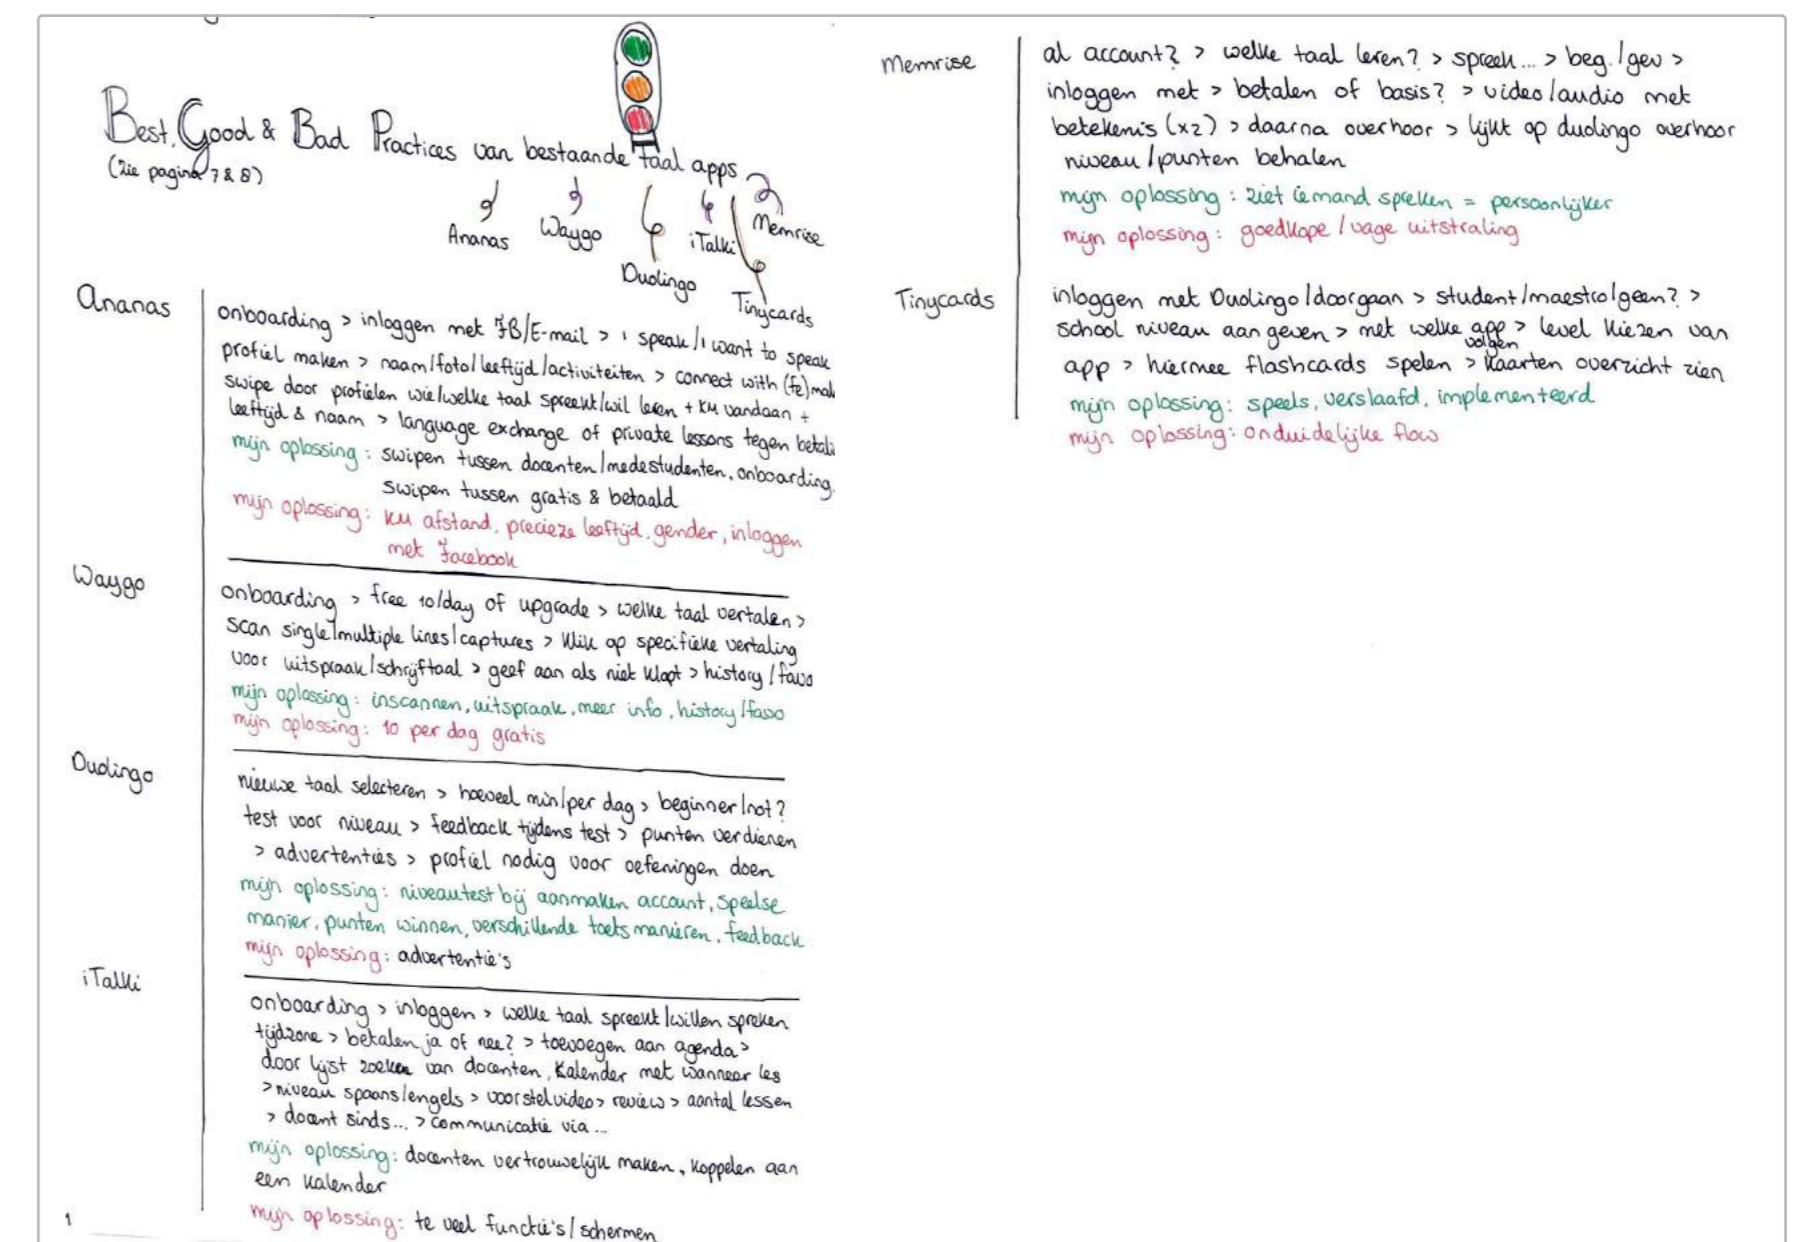 Best, Good & Bad Practices van bestaande taal apps
(zie pagina 7 & 8)
Ananas
Waygo
Duolingo
iTalki
Tinycards
Memrise
Ananas
onboarding > inloggen met FB/E-mail > I speak/I want to speak
profiel maken > naam/foto/leeftijd/activiteiten > connect with (fe)mal
swipe door profielen wie/welke taal spreekt/wil leren + KM vandaan +
leeftijd & naam > language exchange of private lessons tegen betali
mijn oplossing: swipen tussen docenten/medestudenten, onboarding,
swipen tussen gratis & betaald
mijn oplossing: KM afstand, precieze leeftijd, gender, inloggen
met Facebook
Waygo
onboarding > free 10/day of upgrade > welke taal vertalen >
scan single/multiple lines/captures > klik op specifieke vertaling
voor uitspraak/schrijftaal > geef aan als niet klopt > history/favo
mijn oplossing: inscannen, uitspraak, meer info, history/favo
mijn oplossing: 10 per dag gratis
Duolingo
nieuwe taal selecteren > hoeveel min/per dag > beginner/not?
test voor niveau > feedback tijdens test > punten verdienen
> advertenties > profiel nodig voor oefeningen doen
mijn oplossing: niveautest bij aanmaken account, speelse
manier, punten winnen, verschillende toets manieren, feedback
mijn oplossing: advertentie's
iTalki
onboarding > inloggen > welke taal spreekt/willen spreken
tijdzone > betalen ja of nee? > toevoegen aan agenda >
door lijst zoeken van docenten, kalender met wanneer les
> niveau spaans/engels > voorstelvideo > review > aantal lessen
> docent sinds... > communicatie via...
mijn oplossing: docenten vertrouwelijk maken, koppelen aan
een kalender
mijn oplossing: te veel functie's/schermen
1
Memrise
al account? > welke taal leren? > spreek... > beg./gev >
inloggen met > betalen of basis? > video/audio met
betekenis (x2) > daarna overhoor > lijkt op duolingo overhoor
niveau/punten behalen
mijn oplossing: ziet iemand spreken = persoonlijker
mijn oplossing: goedkope/vage uitstraling
Tinycards
inloggen met Duolingo/doorgaan > student/maestro/geen? >
school niveau aangeven > met welke app > level kiezen van
volgen
app > hiermee flashcards spelen > kaarten overzicht zien
mijn oplossing: speels, verslaafd, implementeerd
mijn oplossing: onduidelijke flow